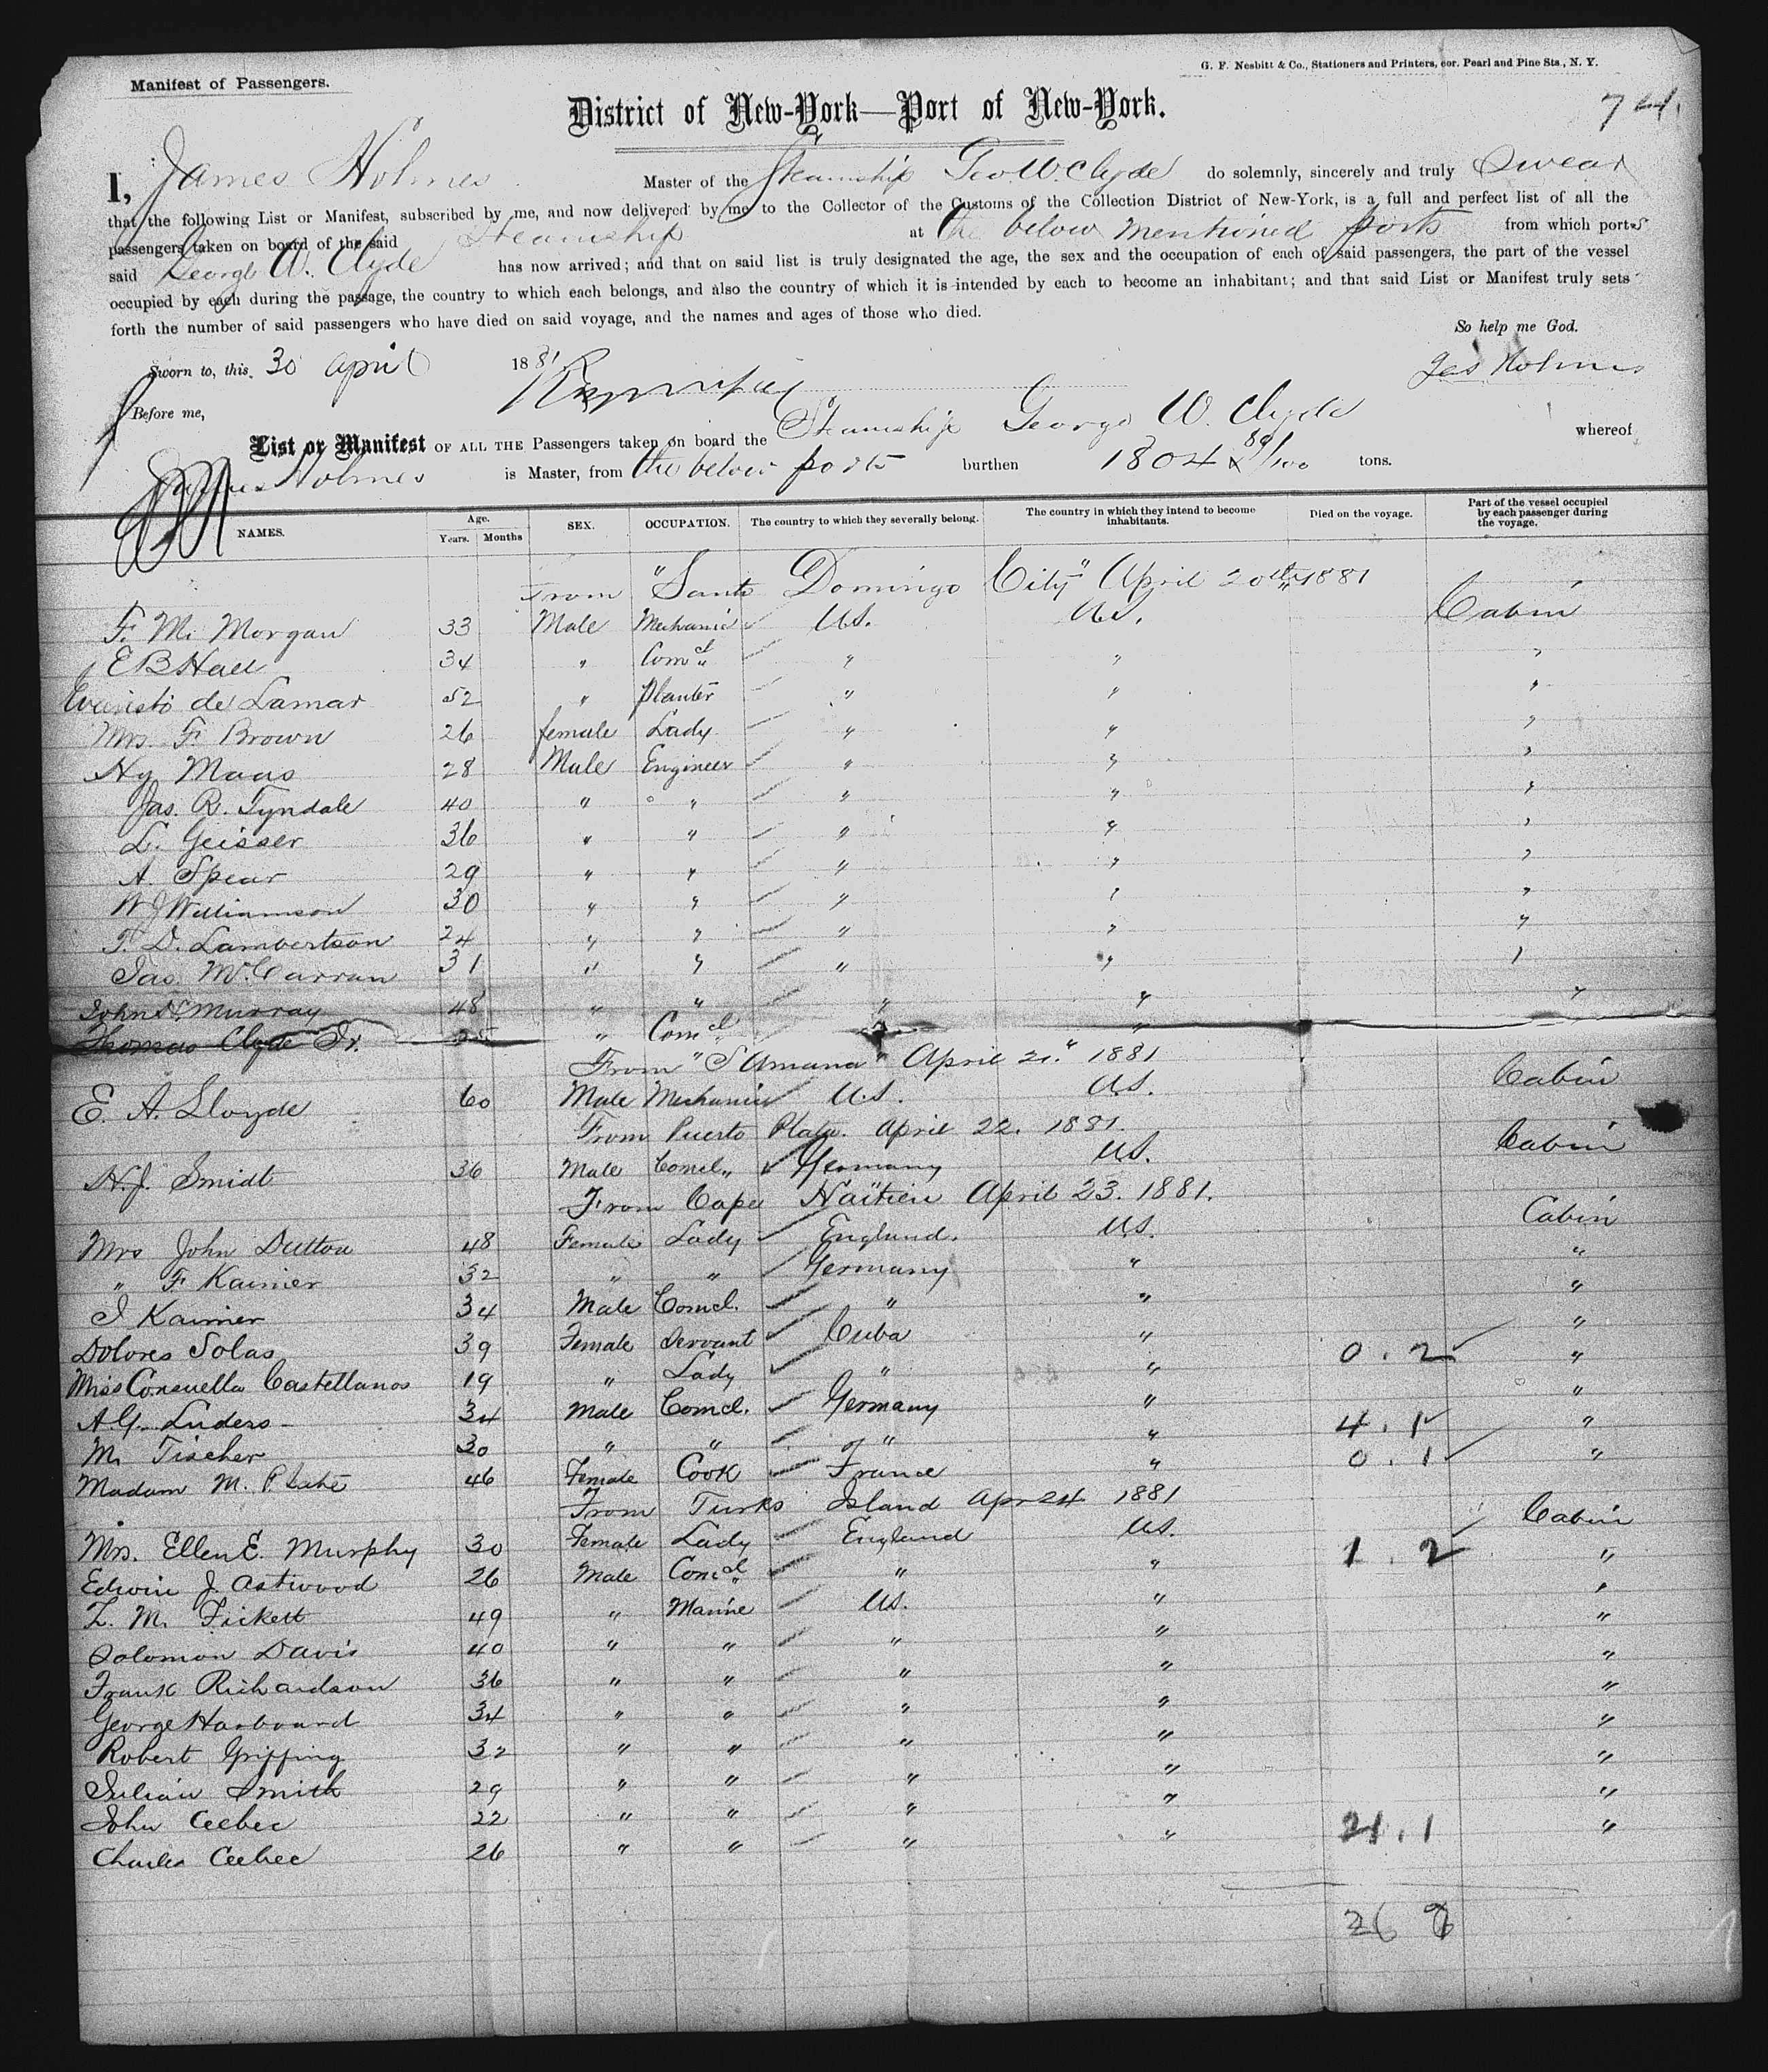 Manifest of Passengers.
G. F. Nesbitt & Co., Stationers and Printers, cor. Pearl and Pine Sts., N. Y.
District of New-York—Port of New-York.
I, James Holmes Master of the Steamship Geo W. Clyde do solemnly, sincerely and truly Swear
that the following List or Manifest, subscribed by me, and now delivered by me to the Collector of the Customs of the Collection District of New-York, is a full and perfect list of all the
passengers taken on board of the said Steamship at the below mentioned ports from which ports
said George W. Clyde has now arrived; and that on said list is truly designated the age, the sex and the occupation of each of said passengers, the part of the vessel
occupied by each during the passage, the country to which each belongs, and also the country of which it is intended by each to become an inhabitant; and that said List or Manifest truly sets
forth the number of said passengers who have died on said voyage, and the names and ages of those who died.
So help me God.
Sworn to, this 30 April 1881
Jas Holmes
Before me,
List or Manifest OF ALL THE Passengers taken on board the Steamship George W. Clyde whereof
James Holmes is Master, from the below ports burthen 1804 89/100 tons.
NAMES. Age. Years. Months SEX. OCCUPATION. The country to which they severally belong. The country in which they intend to become inhabitants. Died on the voyage. Part of the vessel occupied by each passenger during the voyage.
From "Santo Domingo City" April 20th 1881
F. M. Morgan 33 Male Mechanic U.S. U.S. Cabin
E B Hall 34 " Comcl " " "
Evaristo de Lamar 52 " Planter " " "
Mrs. F. Brown 26 female Lady " " "
Hy Maas 28 Male Engineer " " "
Jas. R. Tyndale 40 " " " " "
L. Geisser 36 " " " " "
A. Spear 29 " " " " "
W J Williamson 30 " " " " "
T. D. Lambertson 24 " " " " "
Jas. McCarran 31 " " " " "
John N. Murray 48 " " " " "
Thomas Clyde Jr. 25 " Comcl "
From "Samana" April 21" 1881
E. A. Lloyde 60 Male Mechanic U.S. U.S. Cabin
From Puerto Plata. April 22. 1881.
H. J. Smidt 36 Male Comcl " Germany U.S. Cabin
From Cape Haïtien April 23. 1881.
Mrs John Dutton 48 Female Lady England. U.S. Cabin
" F. Kainer 32 " " Germany " "
J Kainer 34 Male Comcl. " " "
Dolores Solas 39 Female Servant Cuba " "
0.2
Miss Consuella Castellanos 19 " Lady " " "
A. G. Luders 34 Male Comcl. Germany " "
4.1
M. Tischer 30 " " " " "
0.1
Madam M. 46 Female Cook France " "
From Turks Island Apr 24 1881
Mrs. Ellen E. Murphy 30 Female Lady England U.S. Cabin
1.2
Edwin J. Astwood 26 Male Comcl " " "
L. M. Fickett 49 " Marine U.S. " "
Solomon Davis 40 " " " " "
Frank Richardson 36 " " " " "
George Harbourd 34 " " " " "
Robert Griffing 32 " " " " "
Julian Smith 29 " " " " "
John Ceebec 22 " " " " "
21.1
Charles Ceebec 26 " " " " "
26